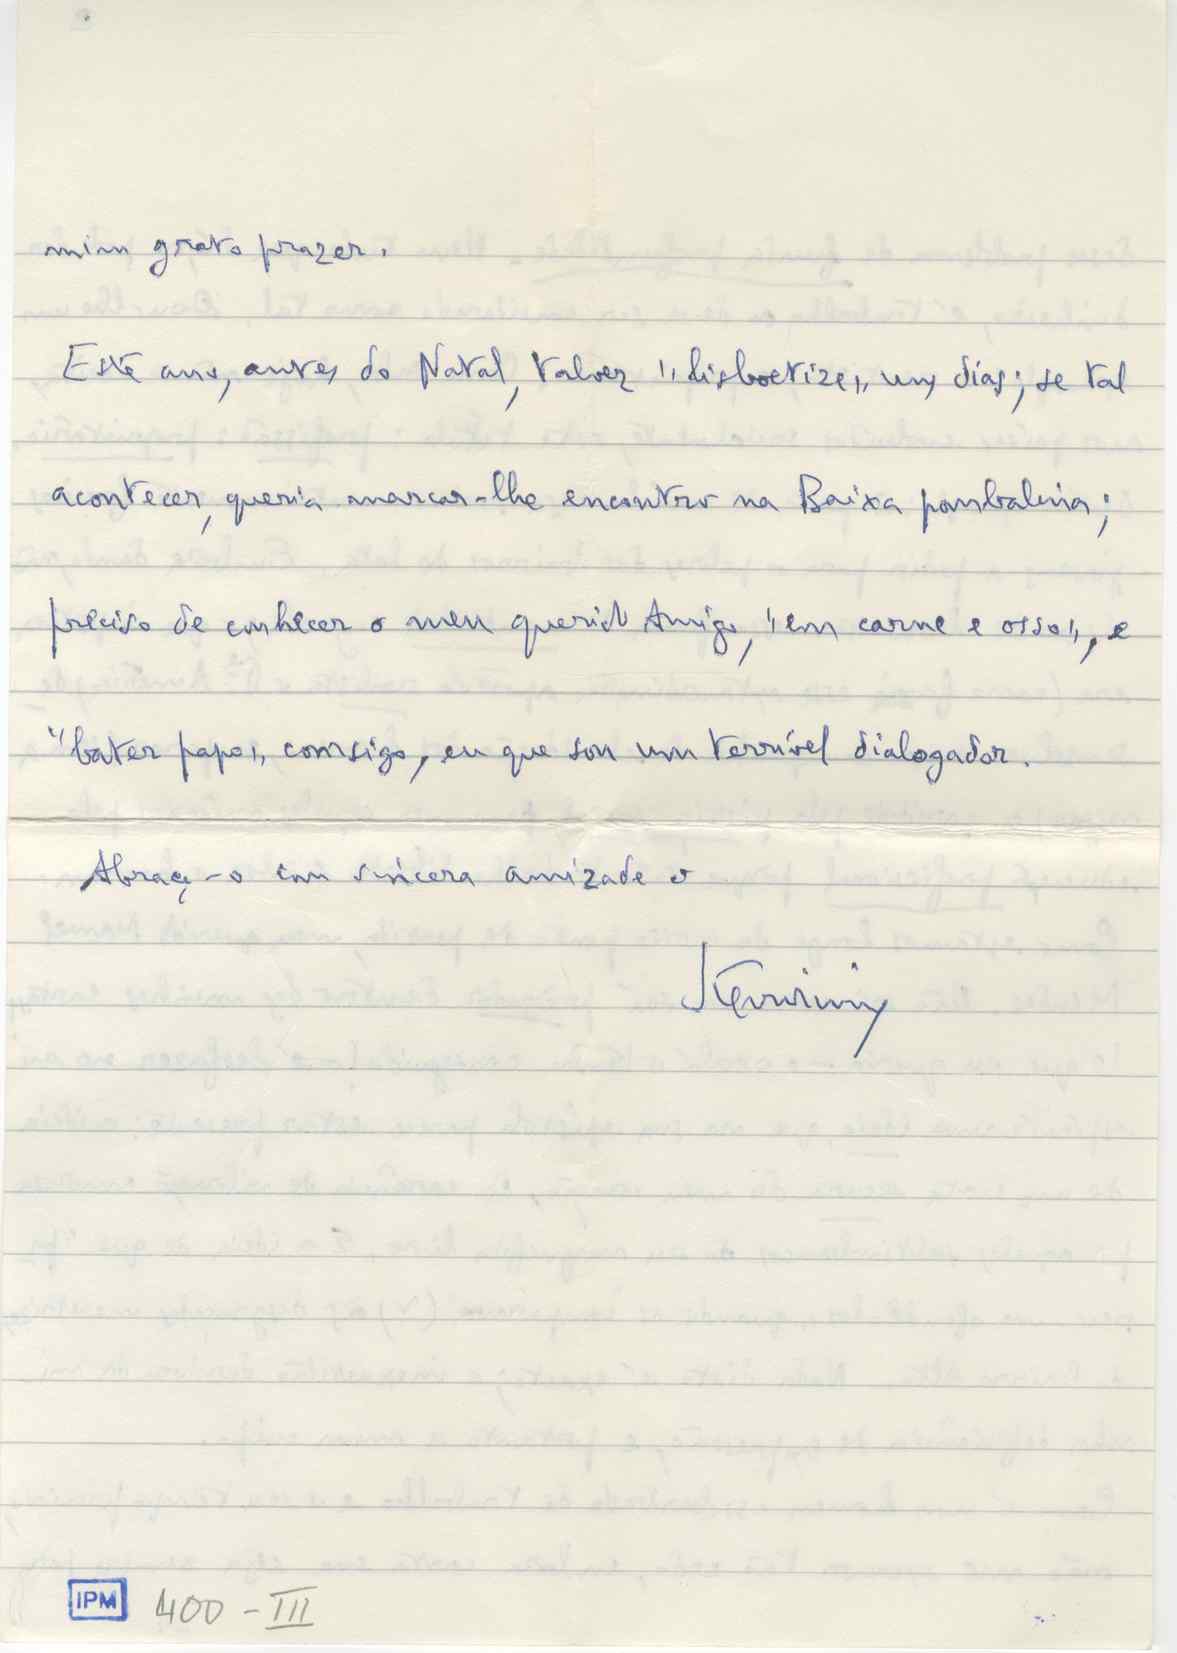 mim grato prazer.
Este ano, antes do Natal, talvez "lisboetize" uns dias; se tal
acontecer, queria marcar-lhe encontro na Baixa pombalina;
preciso de conhecer o meu querido Amigo, "em carne e osso", e
"bater papo" comsigo, eu que sou um terrível dialogador.
Abraça-o com sincera amizade o
IPM 400-III